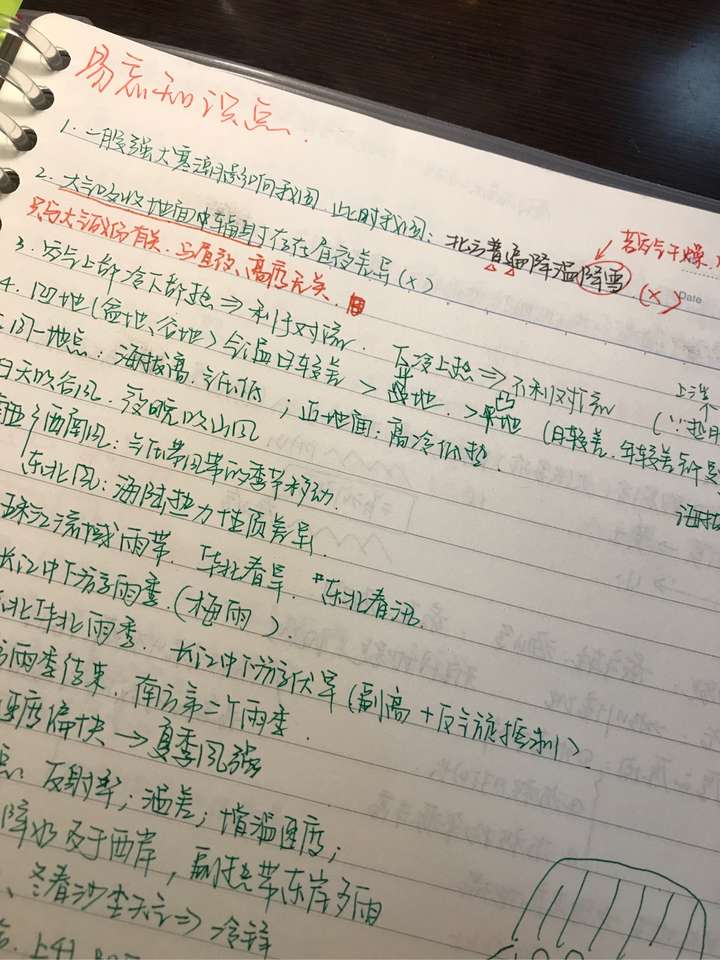 易忘知识点
1. 一股强大寒潮影响我国，此时我国：北方普遍降温降雪 (×)
若空气干燥
Date
2. 大气吸收地面中辐射存在昼夜差异 (×)
只与大气成份有关，与昼夜、高度无关.
3. 空气上部冷下部热 ⇒ 利于对流. 下冷上热 ⇒ 不利对流
4. 凹地(盆地、谷地)气温日较差 > 平地 > 凸地 (日较差、年较差
同一地点：海拔高，气压低；近地面：高冷低热.
白天吹谷风，夜晚吹山风
西南风：气压带风带的季节移动.
东北风：海陆热力性质差异.
珠江流域雨带. 华北春旱. 东北春汛.
长江中下游雨季.(梅雨).
东北华北雨季. 长江中下游伏旱(副高+反气旋控制).
雨季结束，南方第二个雨季.
速度偏快 → 夏季风强
反射率；温差；增温速度；
降水 多于西岸，副热带东岸多雨
冬春沙尘天气 ⇒ 冷锋